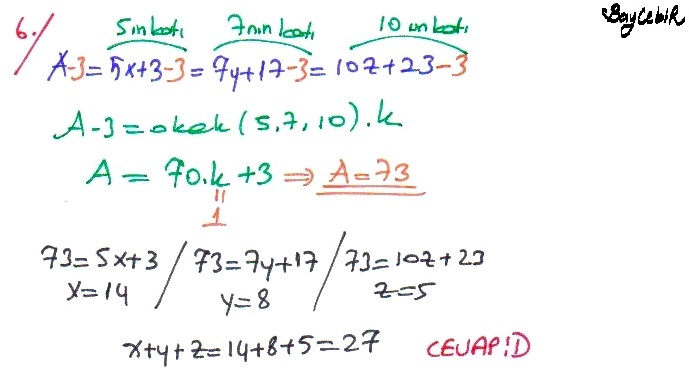 BayCebiR
6./ 5in katı 7nin katı 10 un katı
A-3=5x+3-3=7y+17-3=10z+23-3
A-3=okek(5,7,10).k
A = 70.k+3 ⇒ A=73
"
1
73=5x+3 / 73=7y+17 / 73=10z+23
x=14 y=8 z=5
x+y+z=14+8+5=27 CEVAP:D